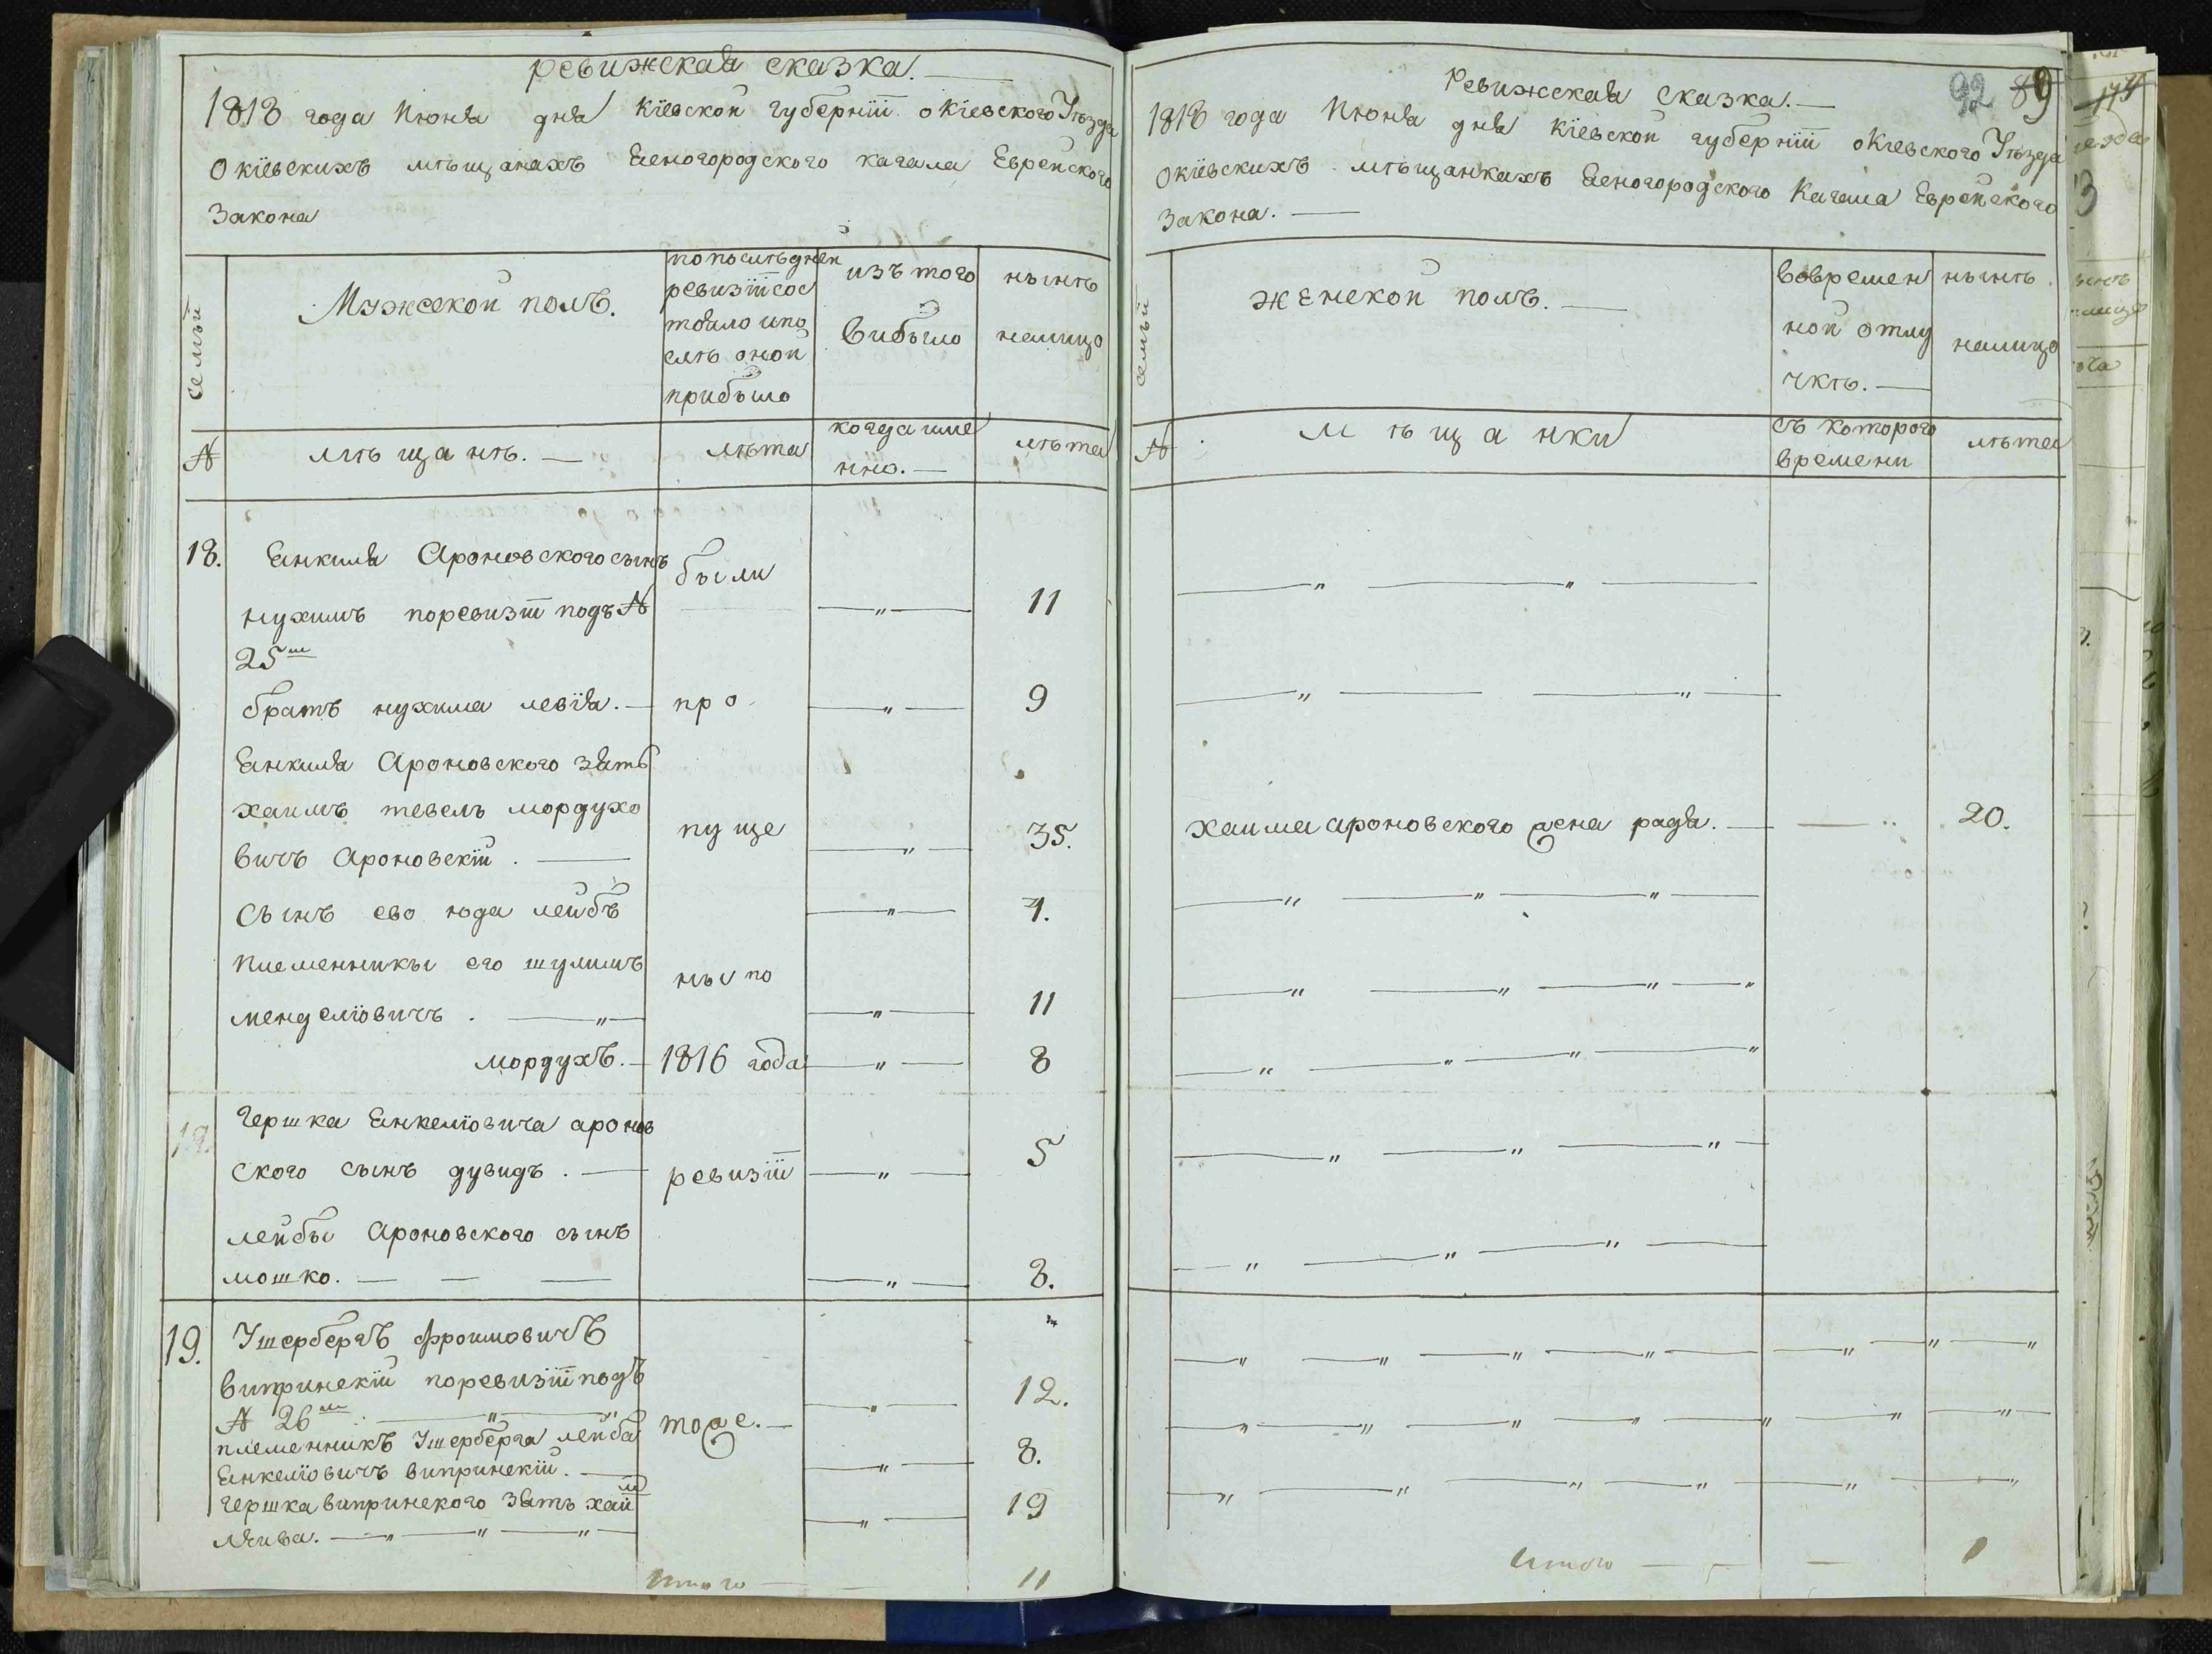 ревижская сказка.
1818 года Июня дня Кіевской губерніи о Кіевского Уѣзда
о кіевскихъ мѣщанахъ Ясногородского кагала Еврейского
Закона
семьи
Мужской полъ.
по послѣдней
ревизіи сос
тояло и по
слѣ оной
прибыло
изъ того
выбыло
нынѣ
налицо
№
мѣщанѣ.
лѣта
когда име
нно.
лѣта
18.
Янкиля Ароновского сынъ
были
нухимъ по ревизіи подъ №
11
25м
братъ нухима левія.
про
9
Янкиля Ароновского зять
хаимъ тевель мордухо
пуще
35.
вичъ Ароновскій.
Сынъ ево юда лейбъ
1.
Племенникы его шулимъ
ны по
менделіовичъ.
11
мордухъ.
1816 года
8
18.
Гершка Янкеліовича аронов
5
ского сынъ дувидъ.
ревизіи
лейбы Ароновского сынъ
мошко.
3.
19.
Ушербергъ фроимовичъ
випринскій по ревизіи подъ
12.
№ 26м
тоже.
племенникъ Ушерберга лейба
8.
Янкеліовичъ випринскій.
гершка випринского зять хаим
19
лейва.
Итого
11
Ревижская сказка.
92 89
1818 года Июня дня Кіевской губерніи о Кіевского Уѣзда
о кіевскихъ мѣщанкахъ Ясногородского Кагала Еврейского
Закона.
семьи
женской полъ.
вовремен
ной отлу
чкѣ.
нынѣ
налицо
№
мѣщанки
съ которого
времени
лѣта
Хаима ароновского жена рада.
20.
Итого
1